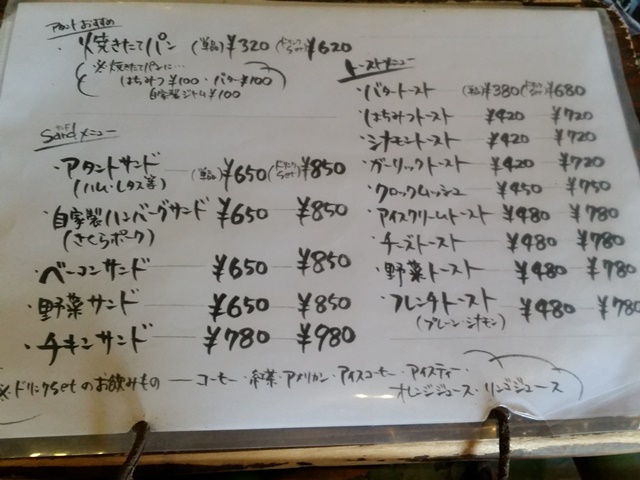 アタントおすすめ
・焼きたてパン (単品)¥320 (ドリンクset)¥620
(※焼きたてパンに…
はちみつ¥100・バター¥100
自家製ジャム¥100)
Sandメニュー
・アタントサンド (単品)¥650 (ドリンクset)¥850
(ハム・レタス等)
・自家製ハンバーグサンド ¥650 ¥850
(さくらポーク)
・ベーコンサンド ¥650 ¥850
・野菜サンド ¥650 ¥850
・チキンサンド ¥780 ¥980
トーストメニュー
・バタートースト (単品)¥380 (ドリンクset)¥680
・はちみつトースト ¥420 ¥720
・シナモントースト ¥420 ¥720
・ガーリックトースト ¥420 ¥720
・クロックムッシュ ¥450 ¥750
・アイスクリームトースト ¥480 ¥780
・チーズトースト ¥480 ¥780
・野菜トースト ¥480 ¥780
・フレンチトースト ¥480 ¥780
(プレーン・シナモン)
※ドリンクsetのお飲みもの ― コーヒー・紅茶・アメリカン・アイスコーヒー・アイスティー・
オレンジジュース・リンゴジュース